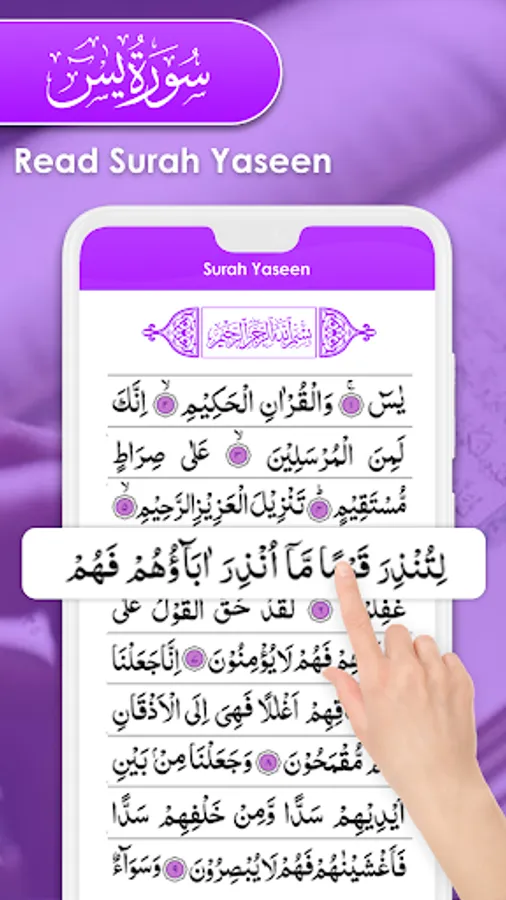 سُورَةُ يٰسٓ
Read Surah Yaseen
Surah Yaseen
بِسْمِ اللّٰهِ الرَّحْمٰنِ الرَّحِيْمِ
يٰسٓ ۚ﴿۱﴾ وَالْقُرْاٰنِ الْحَكِيْمِ ۙ﴿۲﴾ اِنَّكَ
لَمِنَ الْمُرْسَلِيْنَ ۙ﴿۳﴾ عَلٰى صِرَاطٍ
مُّسْتَقِيْمٍ ؕ﴿۴﴾ تَنْزِيْلَ الْعَزِيْزِ الرَّحِيْمِ ۙ﴿۵﴾
لِتُنْذِرَ قَوْمًا مَّاۤ اُنْذِرَ اٰبَآؤُهُمْ فَهُمْ
غٰفِلُوْنَ ﴿۶﴾ لَقَدْ حَقَّ الْقَوْلُ عَلٰٓى
فَهُمْ لَا يُؤْمِنُوْنَ ﴿۷﴾ اِنَّا جَعَلْنَا
اَغْلٰلًا فَهِىَ اِلَى الْاَذْقَانِ
مُّقْمَحُوْنَ ﴿۸﴾ وَجَعَلْنَا مِنْۢ بَيْنِ
اَيْدِيْهِمْ سَدًّا وَّمِنْ خَلْفِهِمْ سَدًّا
فَاَغْشَيْنٰهُمْ فَهُمْ لَا يُبْصِرُوْنَ ﴿۹﴾ وَسَوَآءٌ